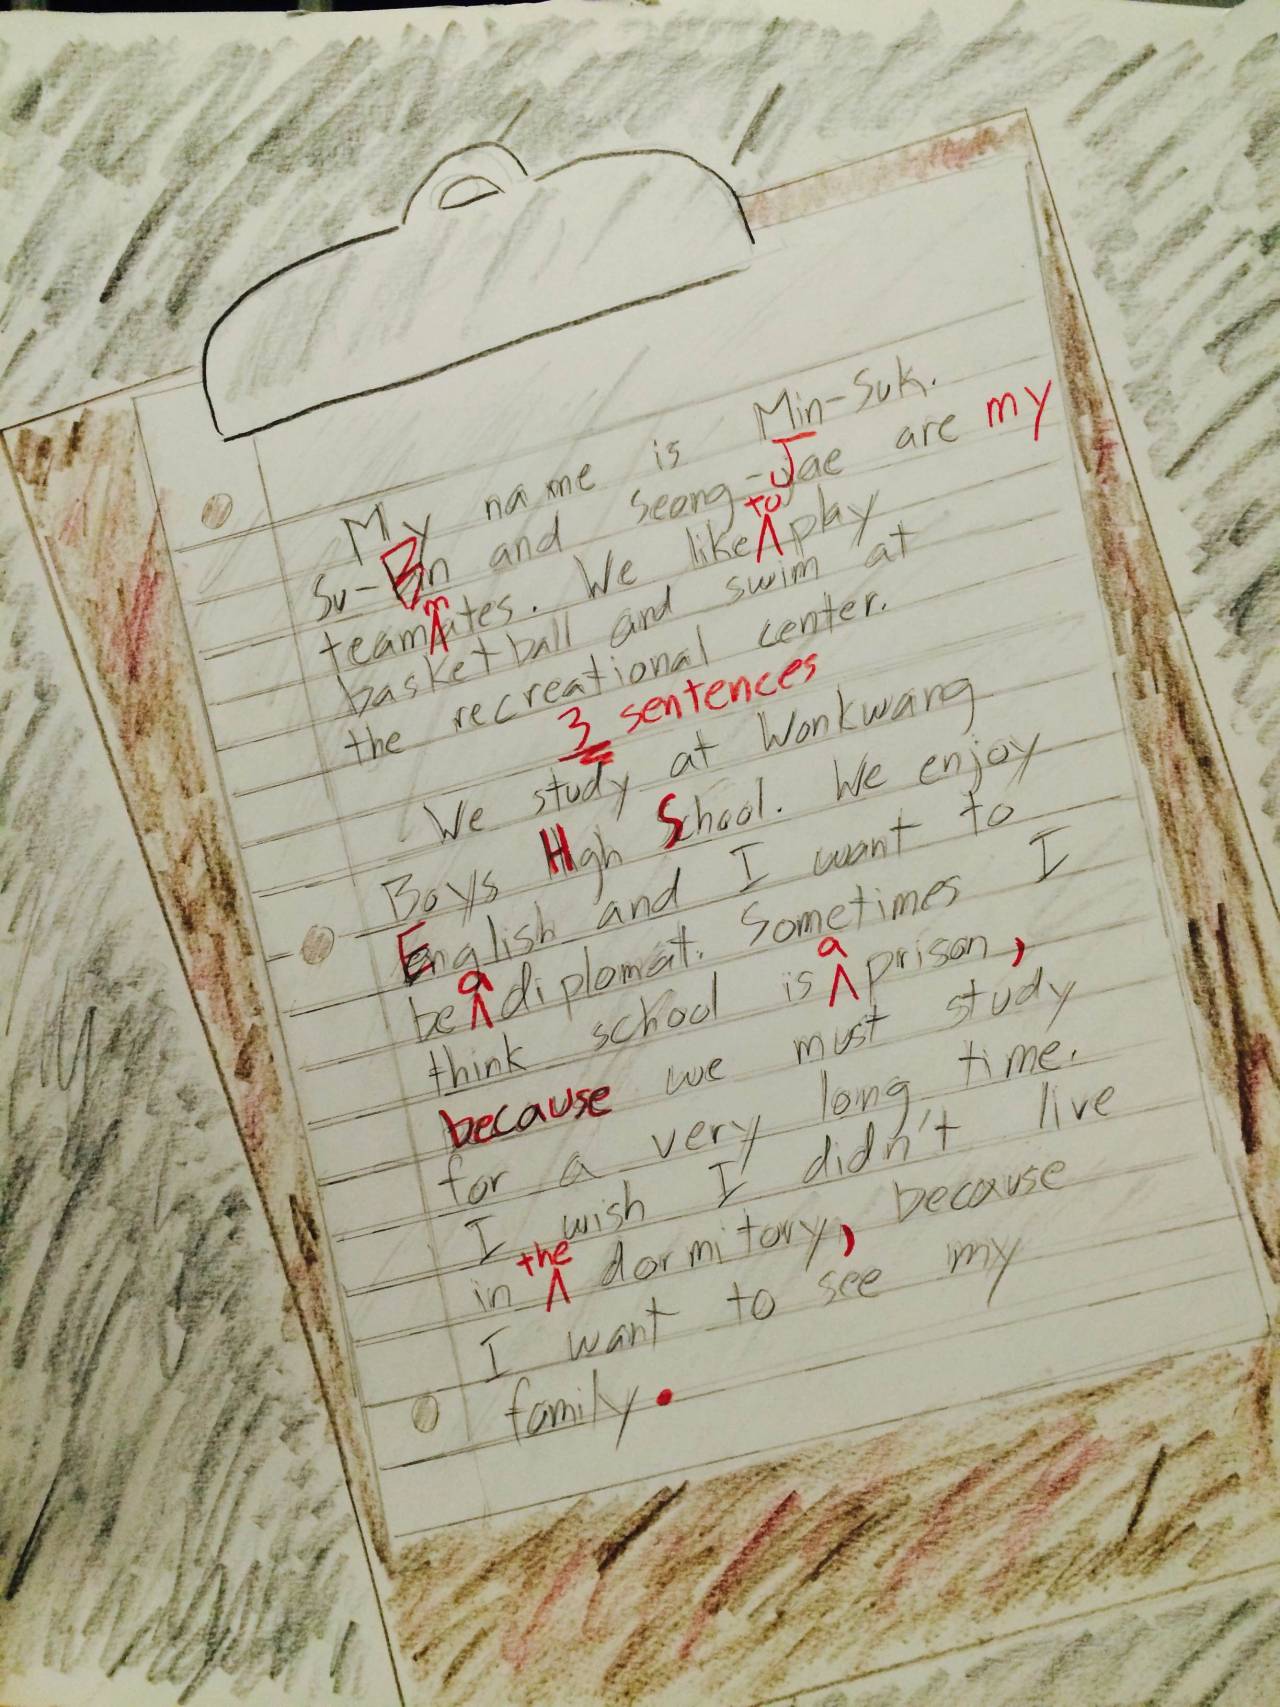 My name is Min-Suk.
Su-Bin and Seong-Jae are my
teammates. We like to play
basketball and swim at
the recreational center.
3 sentences
We study at Wonkwang
Boys High School. We enjoy
English and I want to
be a diplomat. Sometimes I
think school is a prison,
because we must study
for a very long time.
I wish I didn't live
in the dormitory, because
I want to see my
family.